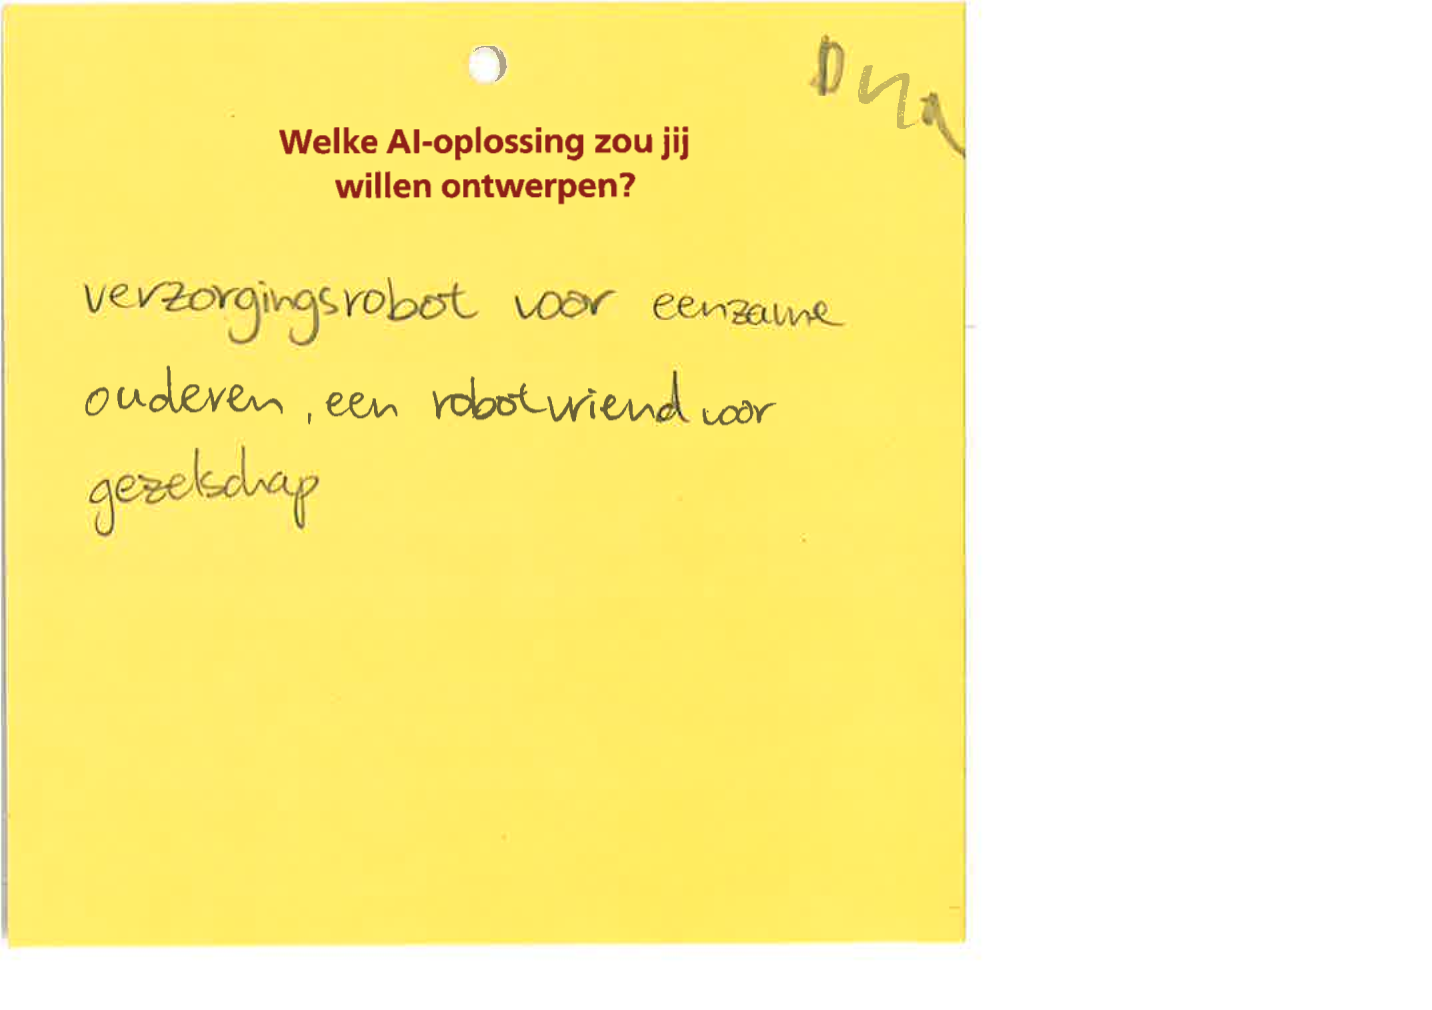 Dna
Welke AI-oplossing zou jij
willen ontwerpen?
verzorgingsrobot voor eenzame
ouderen, een robotvriend voor
gezelschap